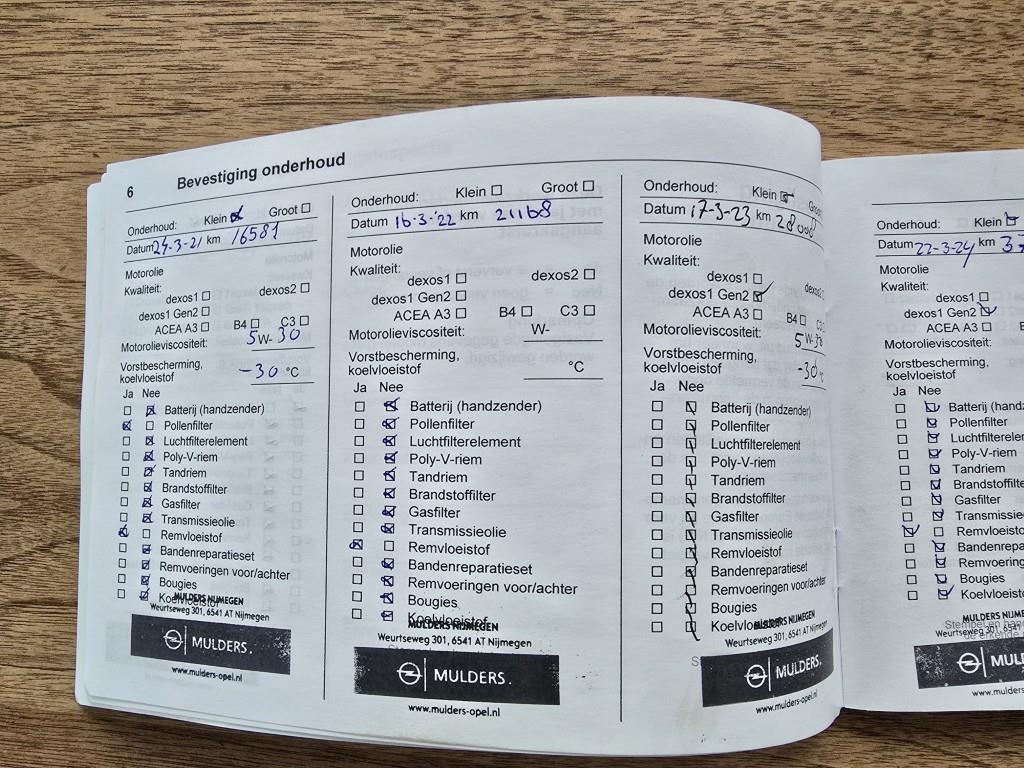 6 Bevestiging onderhoud
Onderhoud: Klein Groot
Datum 24-3-21 km 16581
Motorolie
Kwaliteit:
dexos1 dexos2
dexos1 Gen2
ACEA A3 B4 C3
Motorolieviscositeit: 5 W- 30
Vorstbescherming,
koelvloeistof -30 °C
Ja Nee
Batterij (handzender)
Pollenfilter
Luchtfilterelement
Poly-V-riem
Tandriem
Brandstoffilter
Gasfilter
Transmissieolie
Remvloeistof
Bandenreparatieset
Remvoeringen voor/achter
Bougies
Koelvloeistof
MULDERS NIJMEGEN
Weurtseweg 301, 6541 AT Nijmegen
MULDERS.
www.mulders-opel.nl
Onderhoud: Klein Groot
Datum 16-3-'22 km 21168
Motorolie
Kwaliteit:
dexos1 dexos2
dexos1 Gen2
ACEA A3 B4 C3
Motorolieviscositeit: W-
Vorstbescherming,
koelvloeistof °C
Ja Nee
Batterij (handzender)
Pollenfilter
Luchtfilterelement
Poly-V-riem
Tandriem
Brandstoffilter
Gasfilter
Transmissieolie
Remvloeistof
Bandenreparatieset
Remvoeringen voor/achter
Bougies
Koelvloeistof
MULDERS NIJMEGEN
Weurtseweg 301, 6541 AT Nijmegen
MULDERS.
www.mulders-opel.nl
Onderhoud: Klein Groo
Datum 17-3-23 km 28000
Motorolie
Kwaliteit:
dexos1 dexos2
dexos1 Gen2
ACEA A3 B4 C3
Motorolieviscositeit: 5 W-30
Vorstbescherming,
koelvloeistof -30 °C
Ja Nee
Batterij (handzender)
Pollenfilter
Luchtfilterelement
Poly-V-riem
Tandriem
Brandstoffilter
Gasfilter
Transmissieolie
Remvloeistof
Bandenreparatieset
Remvoeringen voor/achter
Bougies
Koelvloe
MULDERS NIJMEGEN
Weurtseweg 301, 6541 AT Nijmegen
MULDERS.
www.mulders-opel.nl
Onderhoud: Klein
Datum 22-3-24 km 3
Motorolie
Kwaliteit:
dexos1
dexos1 Gen2
ACEA A3
Motorolieviscositeit:
Vorstbescherming,
koelvloeistof
Ja Nee
Batterij (handz
Pollenfilter
Luchtfilterele
Poly-V-riem
Tandriem
Brandstoffilte
Gasfilter
Transmissie
Remvloeistof
Bandenrepa
Remvoering
Bougies
Koelvloeist
Stempel en han
MULDERS N
Weurtseweg 301, 6541
de erkende
MUL
www.mulders